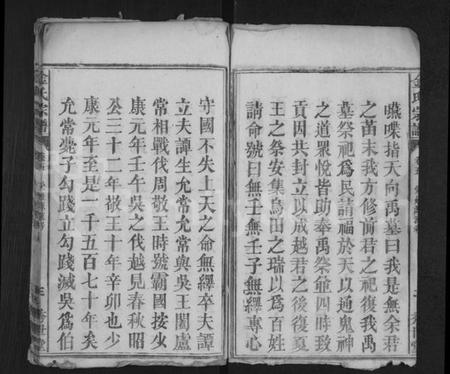 嚥喋指天向禹墓曰我是無余君
之苗末我方修前君之祀復我禹
墓祭祀爲民請福於天以通鬼神
之道眾悅皆助奉禹祭四時致
貢因共封立以成越君之後復夏
王之祭安集鳥田之瑞以爲百姓
請命號曰無壬無壬子無繹專心
守國不失上天之命無繹卒夫譚
立夫譚生允常允常與吳王闔盧
常相戰伐周敬王時號霸國按火
康元年壬午吳之伐越見春秋昭
公三十二年敬王十年辛卯也少
康元年至是一千五百七十年矣
允常薨子勾踐立勾踐滅吳爲伯
金氏宗譜
金氏宗譜